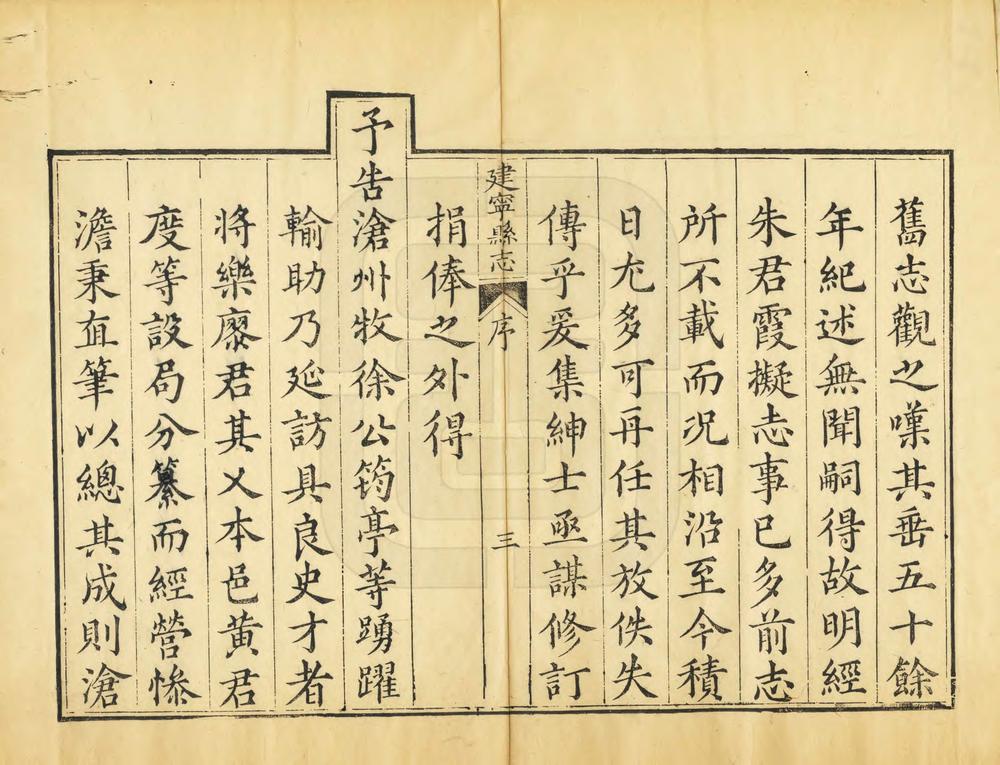 舊志觀之嘆其垂五十餘
年紀述無聞嗣得故明經
朱君霞擬志事已多前志
所不載而况相沿至今積
日尢多可再任其放佚失
傳乎爰集紳士亟謀修訂
建寧縣志 序 三
捐俸之外得
予告滄州牧徐公筠亭等踴躍
輸助乃延訪具良史才者
将樂廖君其乂本邑黄君
度等設局分纂而經營慘
澹秉直筆以總其成則滄